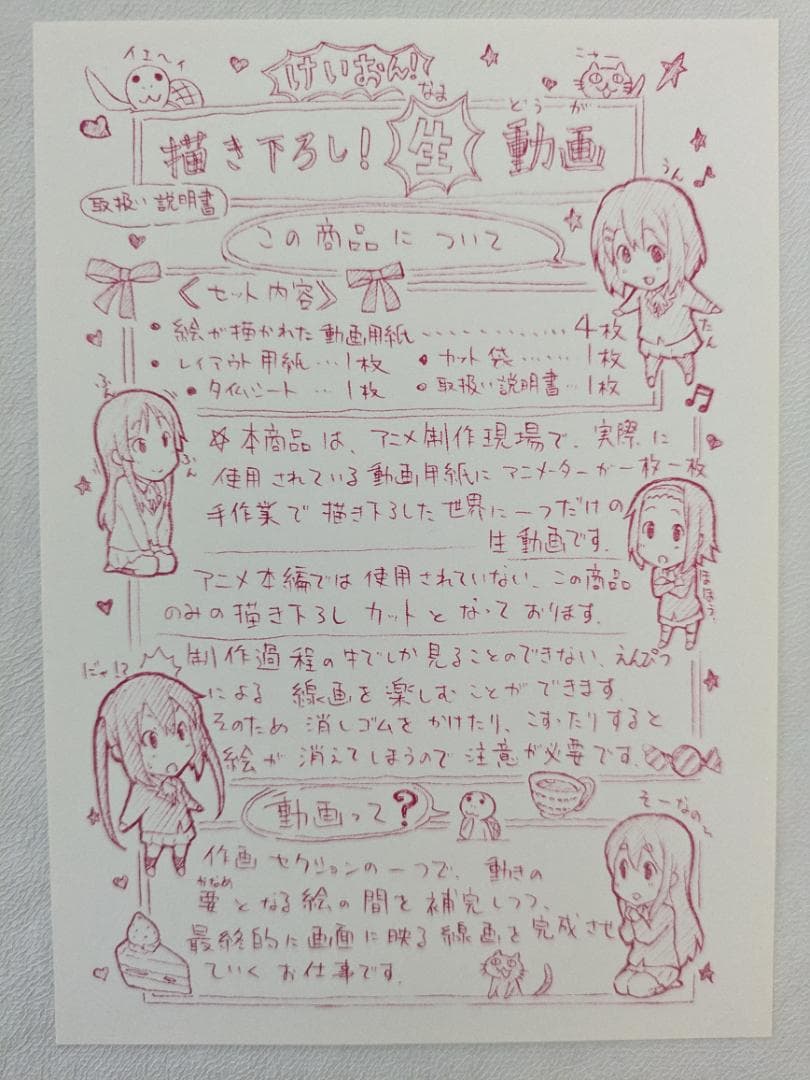 イエヘイ
けいおん!
にゃー
なま
どうが
描き下ろし! 生 動画
取扱い説明書
うん
たん
この商品について
《セット内容》
• 絵が描かれた動画用紙 ………… 4枚
• レイアウト用紙 … 1枚 • カット袋 …… 1枚
• タイムシート … 1枚 • 取扱い説明書 … 1枚
ふん
ふん
☆本商品は、アニメ制作現場で、実際に
使用されている動画用紙にアニメーターが一枚一枚
手作業で描き下ろした世界に一つだけの
生動画です.
ほほう.
アニメ本編では使用されていない、この商品
のみの描き下ろしカットとなっております.
にゃ!?
制作過程の中でしか見ることのできない、えんぴつ
による線画を楽しむことができます.
そのため消しゴムをかけたり、こすったりすると
絵が消えてしまうので注意が必要です.
動画って?
そーなの〜
作画セクションの一つで、動きの
かなめ
要となる絵の間を補完しつつ、
最終的に画面に映る線画を完成させ
ていくお仕事です.